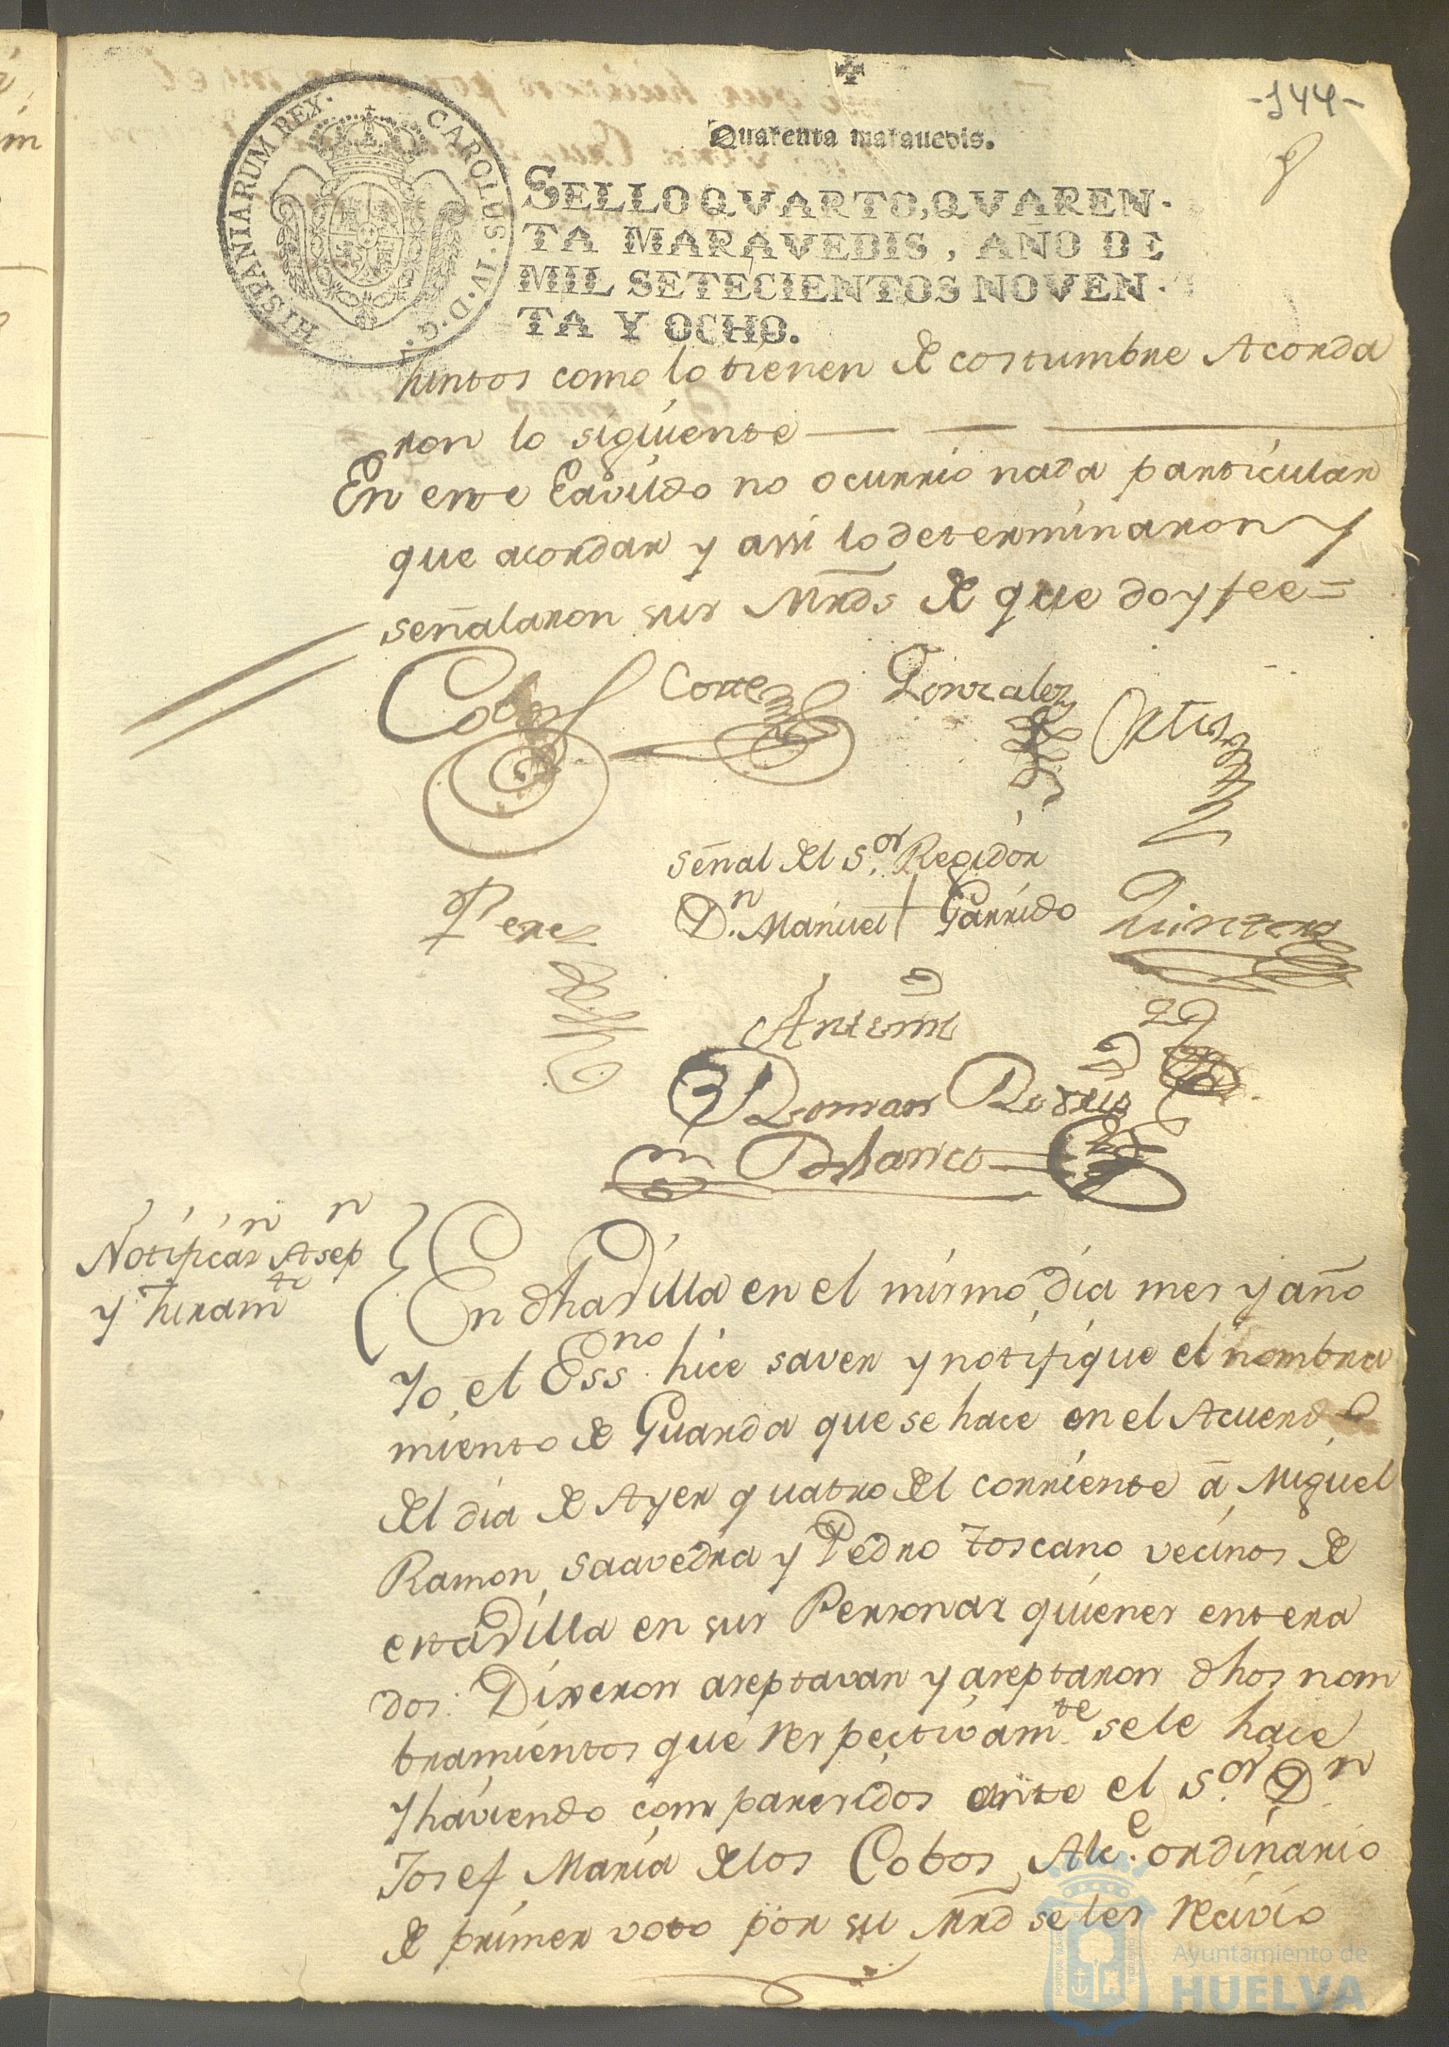 -144-
Quarenta maravedis.
SELLO QVARTO, QVAREN-
TA MARAVEDIS, AÑO DE
MIL SETECIENTOS NOVEN-
TA Y OCHO.
HISPANIARUM REX. CAROLUS. IV. D. G.
Juntos como lo tienen de costumbre Acorda
ron lo siguiente
En este Cavildo no ocurrio nada particular
que acordar y assi lo determinaron y
señalaron sus Mrds de que doy fee=
Cobos Cortes Gonzalez Ortiz
Señal del S.or Regidor
D.n Manuel Garrido
Perez Quintero
Antemi
Roman
Blanco
Notificaz.n Asep.n
y Juram.to
En dha Villa en el mismo dia mes y año
Yo el Ess.no hice saver y notifique el nombra
miento de Guarda que se hace en el Acuerdo
del dia de Ayer quatro del corriente á Miguel
Ramon Saavedra y Pedro Toscano vecinos de
esta Villa en sus Personas quienes entera
dos: Dixeron aseptavan y aseptaron dhos nom
bramientos que respectivam.te se le hace
y haviendo comparesidos ante el S.or D.n
Josef Maria de los Cobos Alc.e ordinario
de primer voto por su Mrd se les recivio
Ayuntamiento de
HUELVA